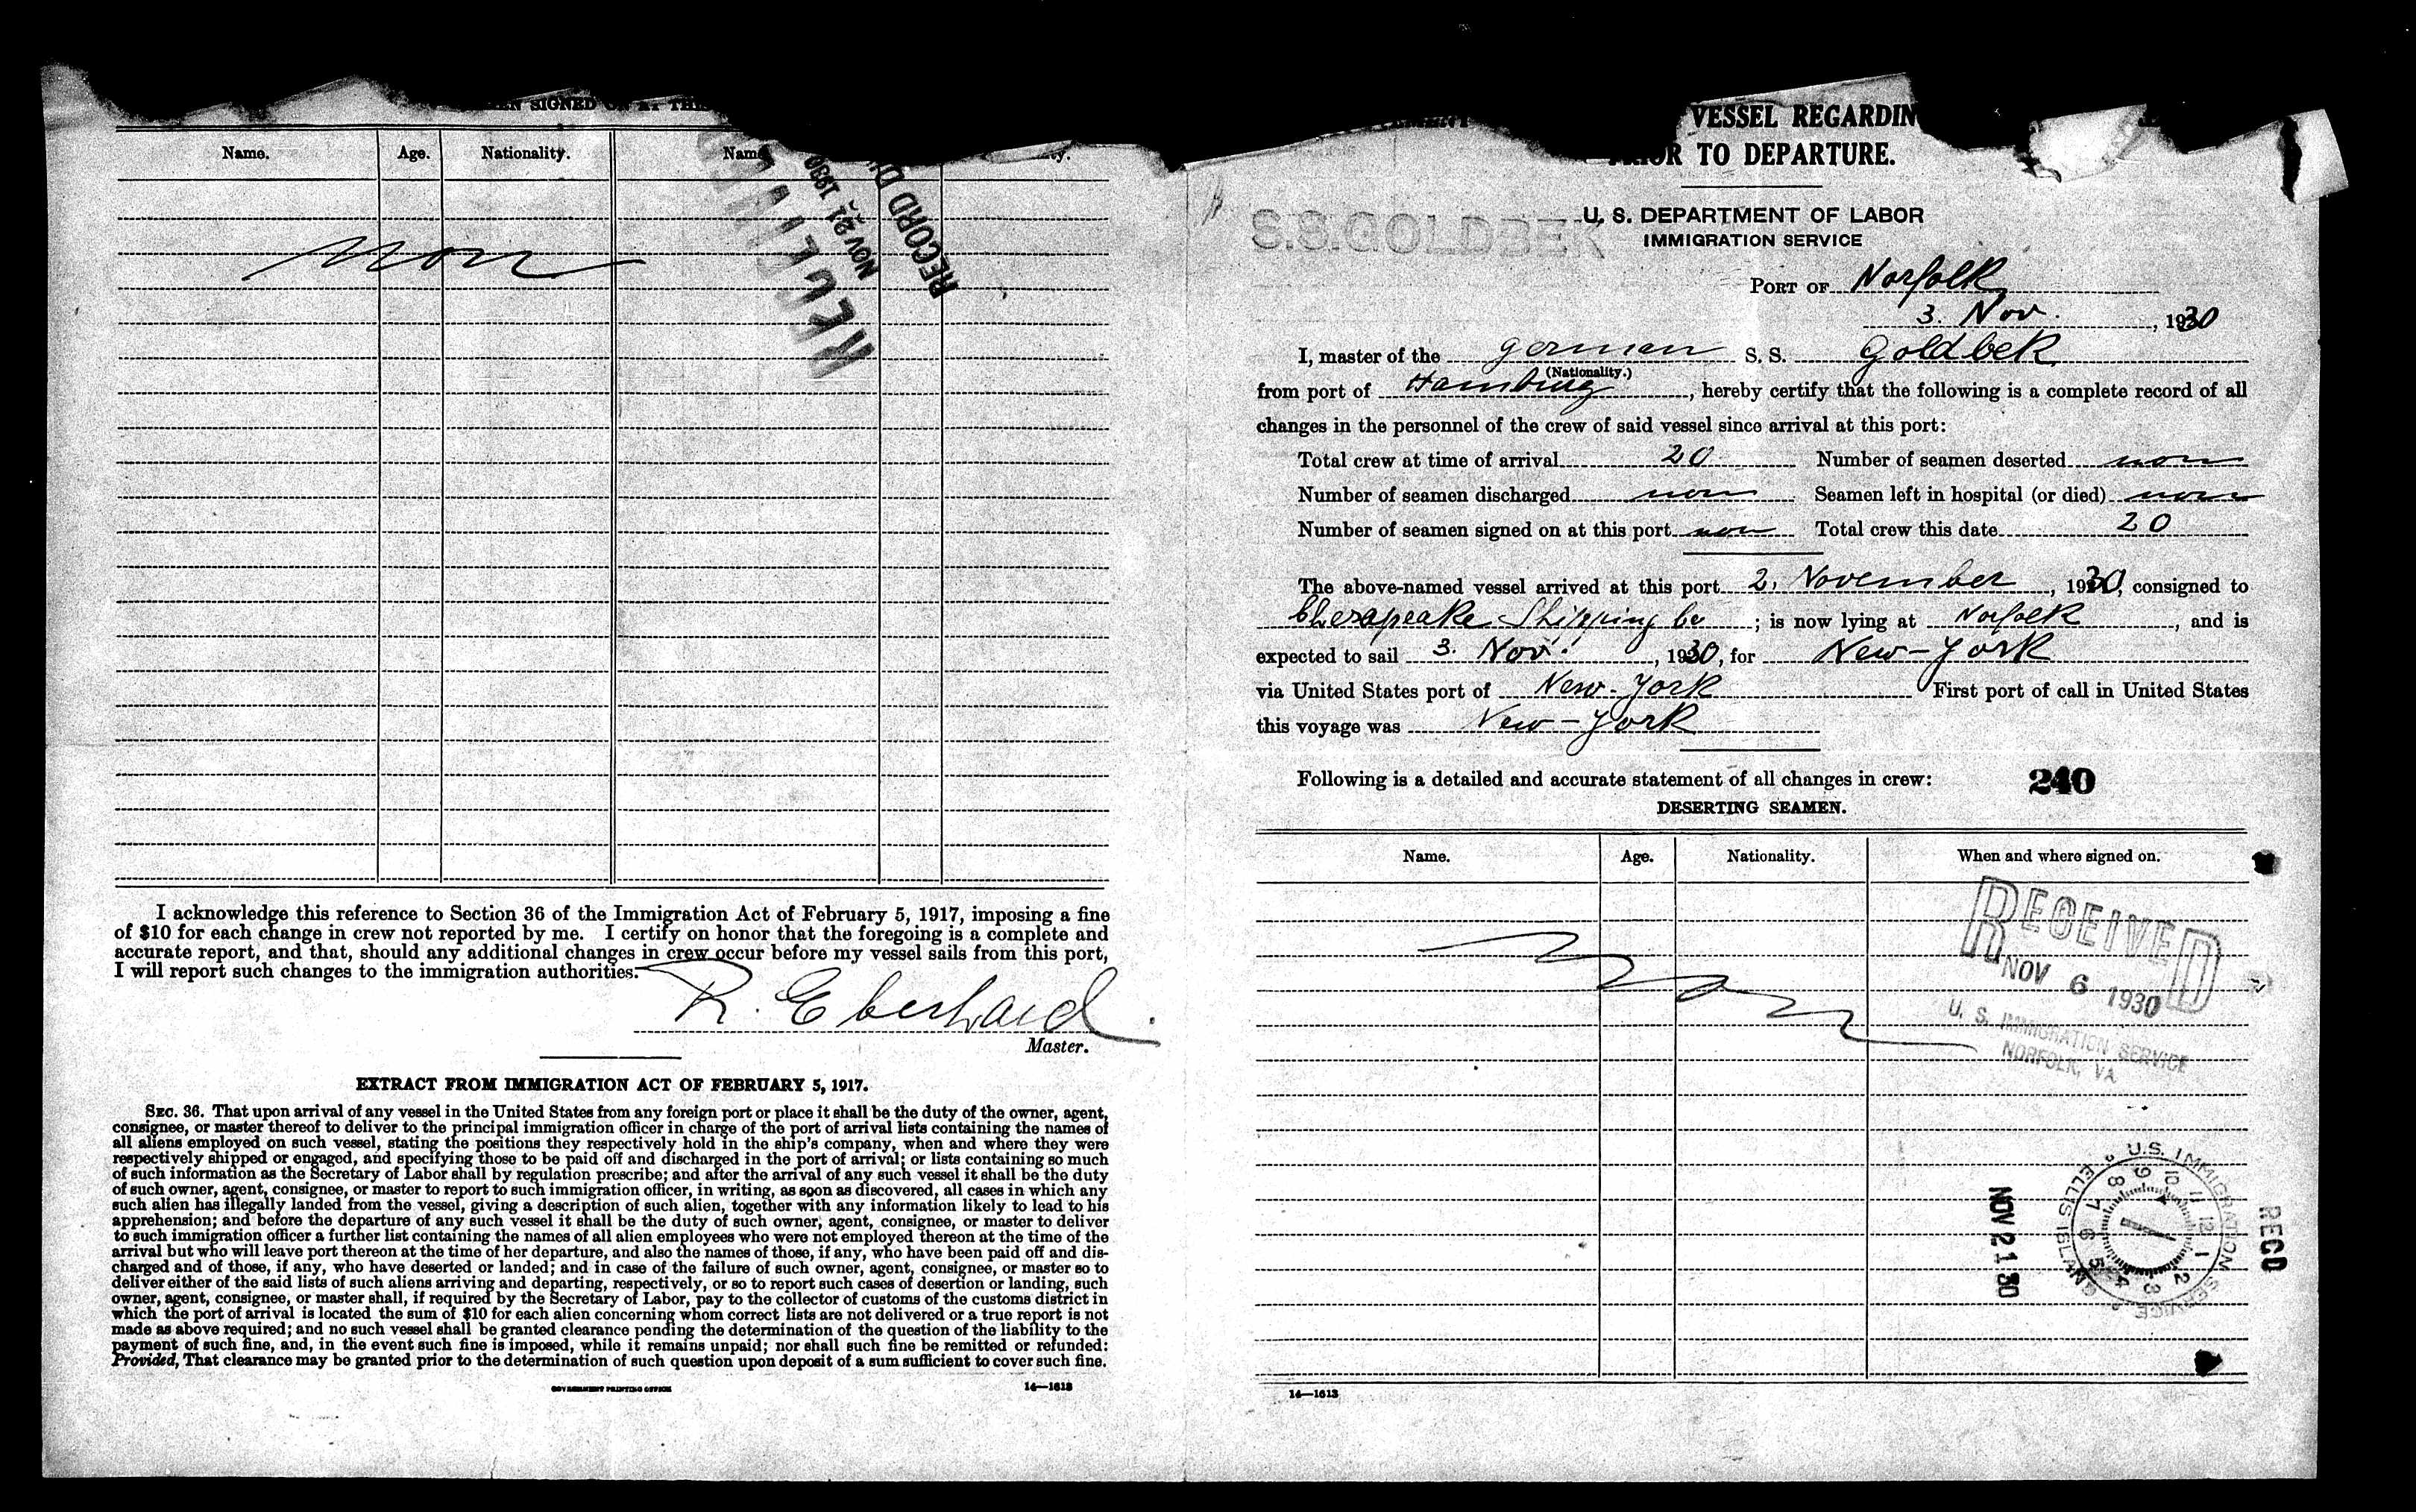 SIGNED
Name. Age. Nationality. Nam
RECEIVED
NOV 21 1930
RECORD D
non
I acknowledge this reference to Section 36 of the Immigration Act of February 5, 1917, imposing a fine
of $10 for each change in crew not reported by me. I certify on honor that the foregoing is a complete and
accurate report, and that, should any additional changes in crew occur before my vessel sails from this port,
I will report such changes to the immigration authorities.
R. Eberhard
Master.
EXTRACT FROM IMMIGRATION ACT OF FEBRUARY 5, 1917.
SEC. 36. That upon arrival of any vessel in the United States from any foreign port or place it shall be the duty of the owner, agent,
consignee, or master thereof to deliver to the principal immigration officer in charge of the port of arrival lists containing the names of
all aliens employed on such vessel, stating the positions they respectively hold in the ship's company, when and where they were
respectively shipped or engaged, and specifying those to be paid off and discharged in the port of arrival; or lists containing so much
of such information as the Secretary of Labor shall by regulation prescribe; and after the arrival of any such vessel it shall be the duty
of such owner, agent, consignee, or master to report to such immigration officer, in writing, as soon as discovered, all cases in which any
such alien has illegally landed from the vessel, giving a description of such alien, together with any information likely to lead to his
apprehension; and before the departure of any such vessel it shall be the duty of such owner, agent, consignee, or master to deliver
to such immigration officer a further list containing the names of all alien employees who were not employed thereon at the time of the
arrival but who will leave port thereon at the time of her departure, and also the names of those, if any, who have been paid off and dis-
charged and of those, if any, who have deserted or landed; and in case of the failure of such owner, agent, consignee, or master so to
deliver either of the said lists of such aliens arriving and departing, respectively, or so to report such cases of desertion or landing, such
owner, agent, consignee, or master shall, if required by the Secretary of Labor, pay to the collector of customs of the customs district in
which the port of arrival is located the sum of $10 for each alien concerning whom correct lists are not delivered or a true report is not
made as above required; and no such vessel shall be granted clearance pending the determination of the question of the liability to the
payment of such fine, and, in the event such fine is imposed, while it remains unpaid; nor shall such fine be remitted or refunded:
Provided, That clearance may be granted prior to the determination of such question upon deposit of a sum sufficient to cover such fine.
GOVERNMENT PRINTING OFFICE 14—1613
VESSEL REGARDIN
TO DEPARTURE.
S.S.GOLDBEK
U. S. DEPARTMENT OF LABOR
IMMIGRATION SERVICE
PORT OF Norfolk
3. Nov. , 1930
I, master of the german S. S. Goldbek
(Nationality.)
from port of Hamburg, hereby certify that the following is a complete record of all
changes in the personnel of the crew of said vessel since arrival at this port:
Total crew at time of arrival 20 Number of seamen deserted non
Number of seamen discharged non Seamen left in hospital (or died) non
Number of seamen signed on at this port non Total crew this date 20
The above-named vessel arrived at this port 2. November, 1930, consigned to
Chesapeake Shipping Co; is now lying at Norfolk, and is
expected to sail 3. Nov., 1930, for New-York
via United States port of New-York First port of call in United States
this voyage was New-York
Following is a detailed and accurate statement of all changes in crew: 240
DESERTING SEAMEN.
Name. Age. Nationality. When and where signed on.
non
RECEIVED
NOV 6 1930
U. S. IMMIGRATION SERVICE
NORFOLK, VA
U.S. IMMIGRATION SERVICE
ELLIS ISLAND
12 1 2 3 4 5 6 7 8 9 10 11
NOV 21 30
RECD
14—1613